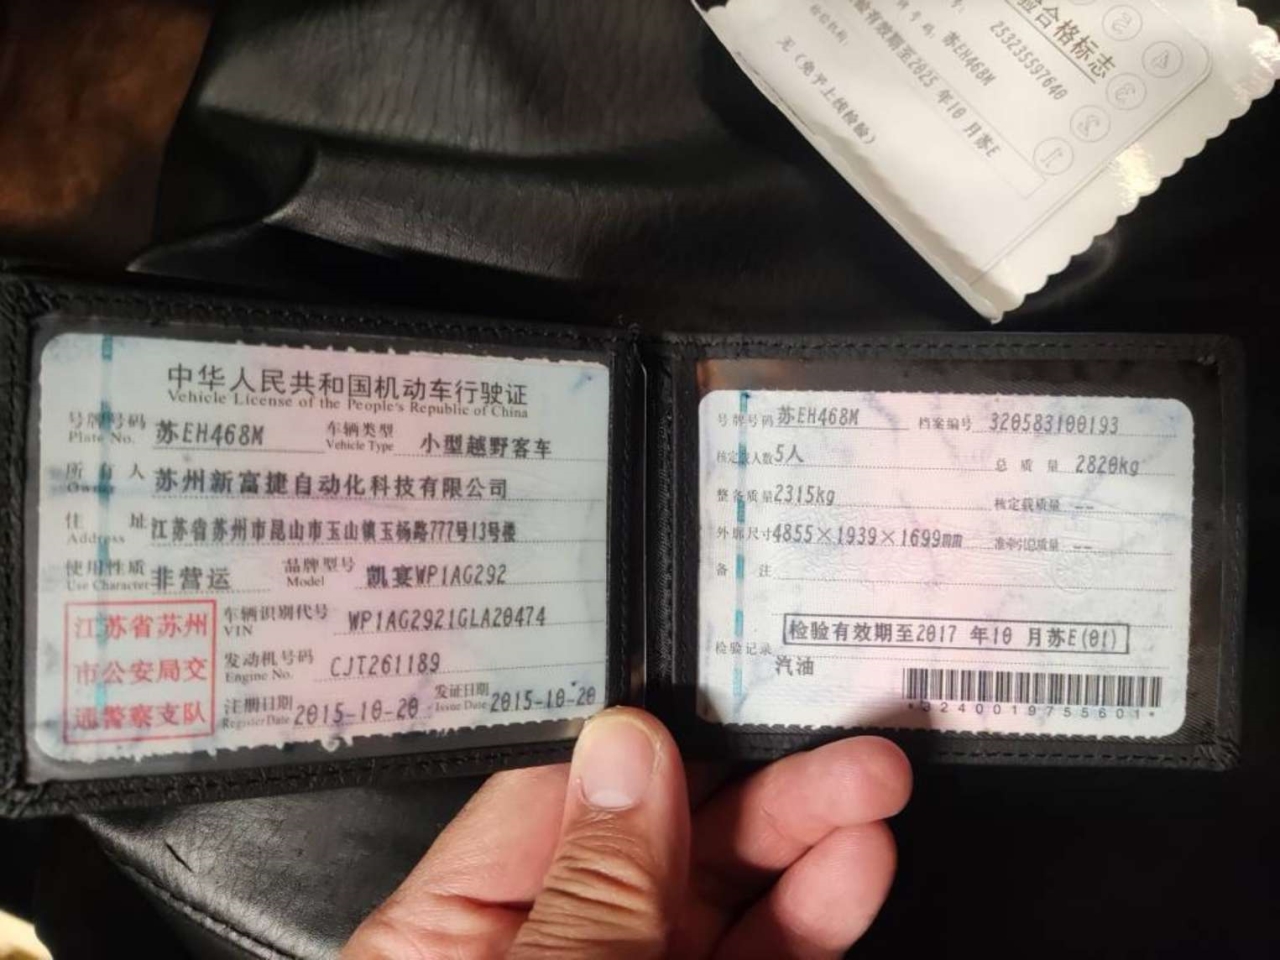 验合格标志
253235597640
号牌号码: 苏EH468M
检验有效期至2025 年10 月苏E
检验机构:
无（免于上线检验）
中华人民共和国机动车行驶证
Vehicle License of the People's Republic of China
号牌号码 苏EH468M 车辆类型 小型越野客车
Plate No. Vehicle Type
所有人 苏州新富捷自动化科技有限公司
Owner
住址 江苏省苏州市昆山市玉山镇玉杨路777号13号楼
Address
使用性质 非营运 品牌型号 凯宴WP1AG292
Use Character Model
江苏省苏州
市公安局交
通警察支队
车辆识别代号 WP1AG2921GLA20474
VIN
发动机号码 CJT261189
Engine No.
注册日期 2015-10-20 发证日期 2015-10-20
Register Date Issue Date
号牌号码 苏EH468M 档案编号 320583100193
核定载人数 5人 总质量 2820kg
整备质量 2315kg 核定载质量 --
外廓尺寸 4855×1939×1699mm 准牵引总质量 --
备注
检验记录 检验有效期至2017 年10 月苏E(01)
汽油
*3240019755601*